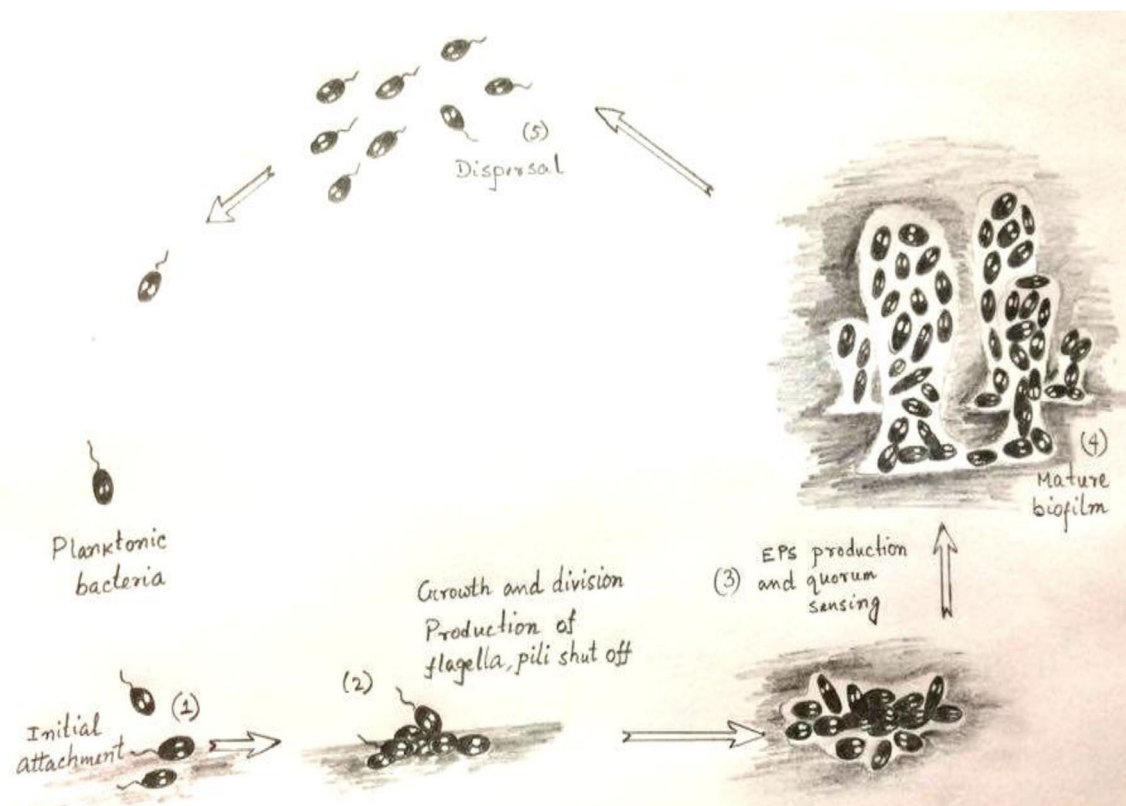 (5)
Dispersal
Planktonic
bacteria
(1)
Initial
attachment
(2)
Growth and division
Production of
flagella, pili shut off
(3) EPS production
and quorum
sensing
(4)
Mature
biofilm